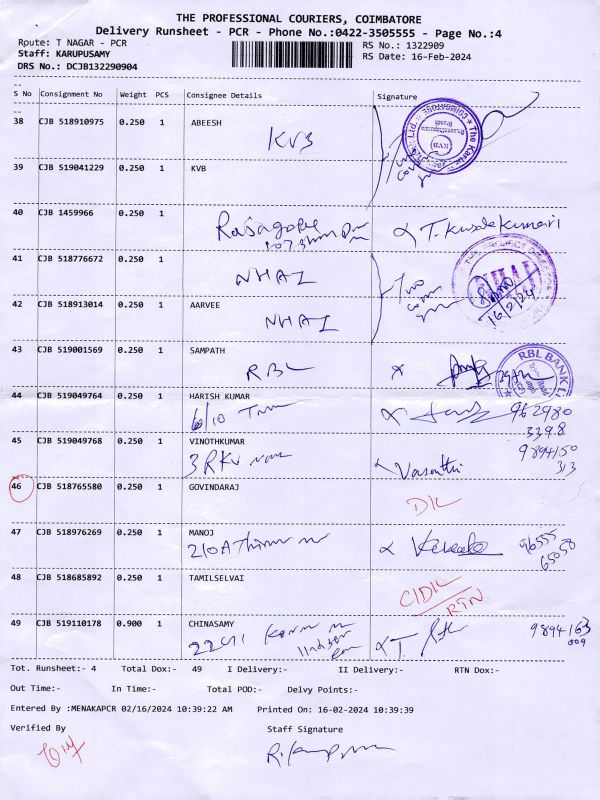 THE PROFESSIONAL COURIERS, COIMBATORE
Delivery Runsheet - PCR - Phone No.:0422-3505555 - Page No.:4
Route: T NAGAR - PCR RS No.: 1322909
Staff: KARUPUSAMY RS Date: 16-Feb-2024
DRS No.: DCJB132290904
S No Consignment No Weight PCS Consignee Details Signature
38 CJB 518910975 0.250 1 ABEESH
KVB
39 CJB 519041229 0.250 1 KVB
40 CJB 1459966 0.250 1
T. Kusalakumari
41 CJB 518776672 0.250 1
NHAI
16/2/24
42 CJB 518913014 0.250 1 AARVEE
NHAI
43 CJB 519001569 0.250 1 SAMPATH
RBL
RBL BANK L
44 CJB 519049764 0.250 1 HARISH KUMAR
6/10
962980
3398
45 CJB 519049768 0.250 1 VINOTHKUMAR
3 RKV
Vasanthi
9894150
313
46 CJB 518765580 0.250 1 GOVINDARAJ
DL
47 CJB 518976269 0.250 1 MANOJ
210A
96555
65050
48 CJB 518685892 0.250 1 TAMILSELVAI
RTN
49 CJB 519110178 0.900 1 CHINASAMY
9894163
009
Tot. Runsheet:- 4 Total Dox:- 49 I Delivery:- II Delivery:- RTN Dox:-
Out Time:- In Time:- Total POD:- Delvy Points:-
Entered By :MENAKAPCR 02/16/2024 10:39:22 AM Printed On: 16-02-2024 10:39:39
Verified By Staff Signature